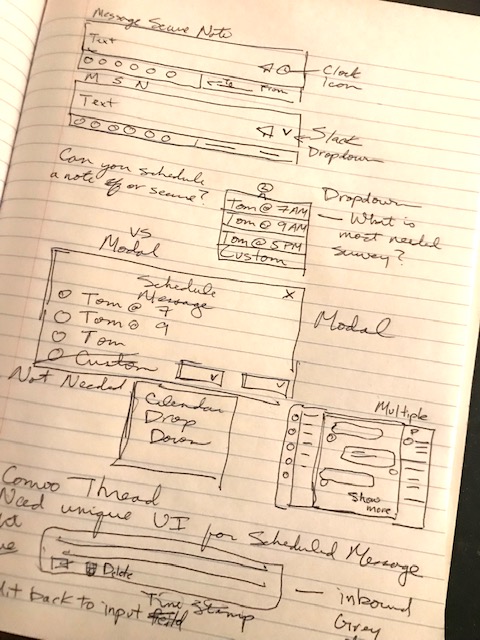 Message Secure Note
Text
Clock
Icon
To From
M S N
Text
Slack
Dropdown
Can you schedule
a note or secure?
Dropdown
Tom @ 7AM
— What is
Tom @ 9AM
most needed
Tom @ 5PM
survey?
Custom
VS
Modal
Schedule
Message
X
Tom @ 7
Tom @ 9
Tom
Custom
Modal
Not Needed
Calendar
Drop
Down
Multiple
Show
more
Convo Thread
Need unique UI for Scheduled Message
Delete
Time Stamp
— inbound
Grey
back to input field